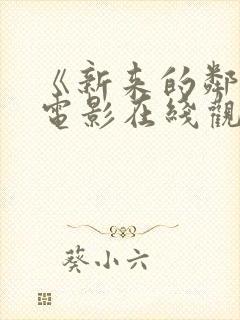 《新来的鄰
電影在綫觀
葵小六